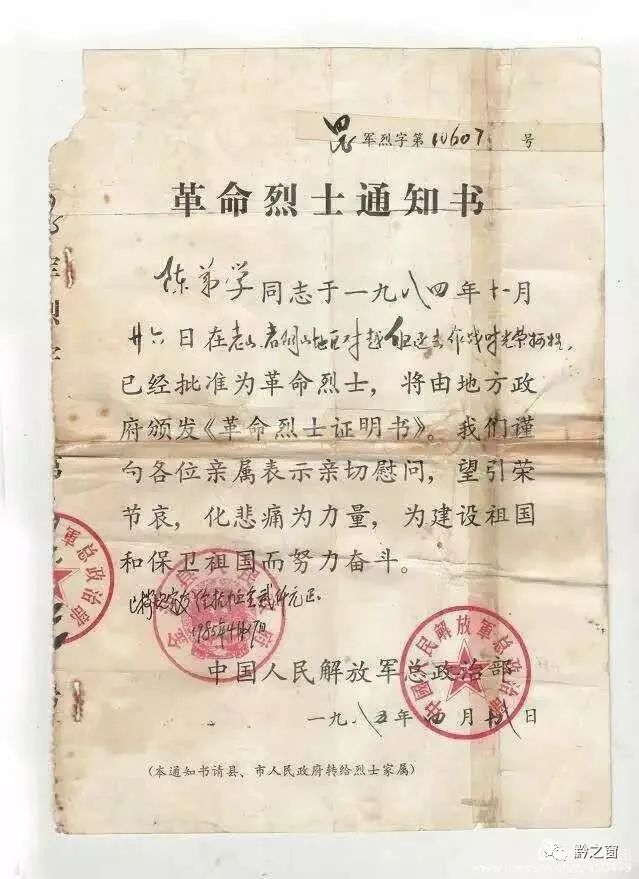 昆军烈字第10607号
革命烈士通知书
陈弟学同志于一九八四年十一月
廿六日在老山者阴山地区对越自卫还击作战时光荣牺牲,
已经批准为革命烈士,将由地方政
府颁发《革命烈士证明书》。我们谨
向各位亲属表示亲切慰问,望引荣
节哀,化悲痛为力量,为建设祖国
和保卫祖国而努力奋斗。
1985年4月
中国人民解放军总政治部
中國人民解放軍总政治部
一九八五年四月十八日
(本通知书请县、市人民政府转给烈士家属)
軍总政治部
黔之窗